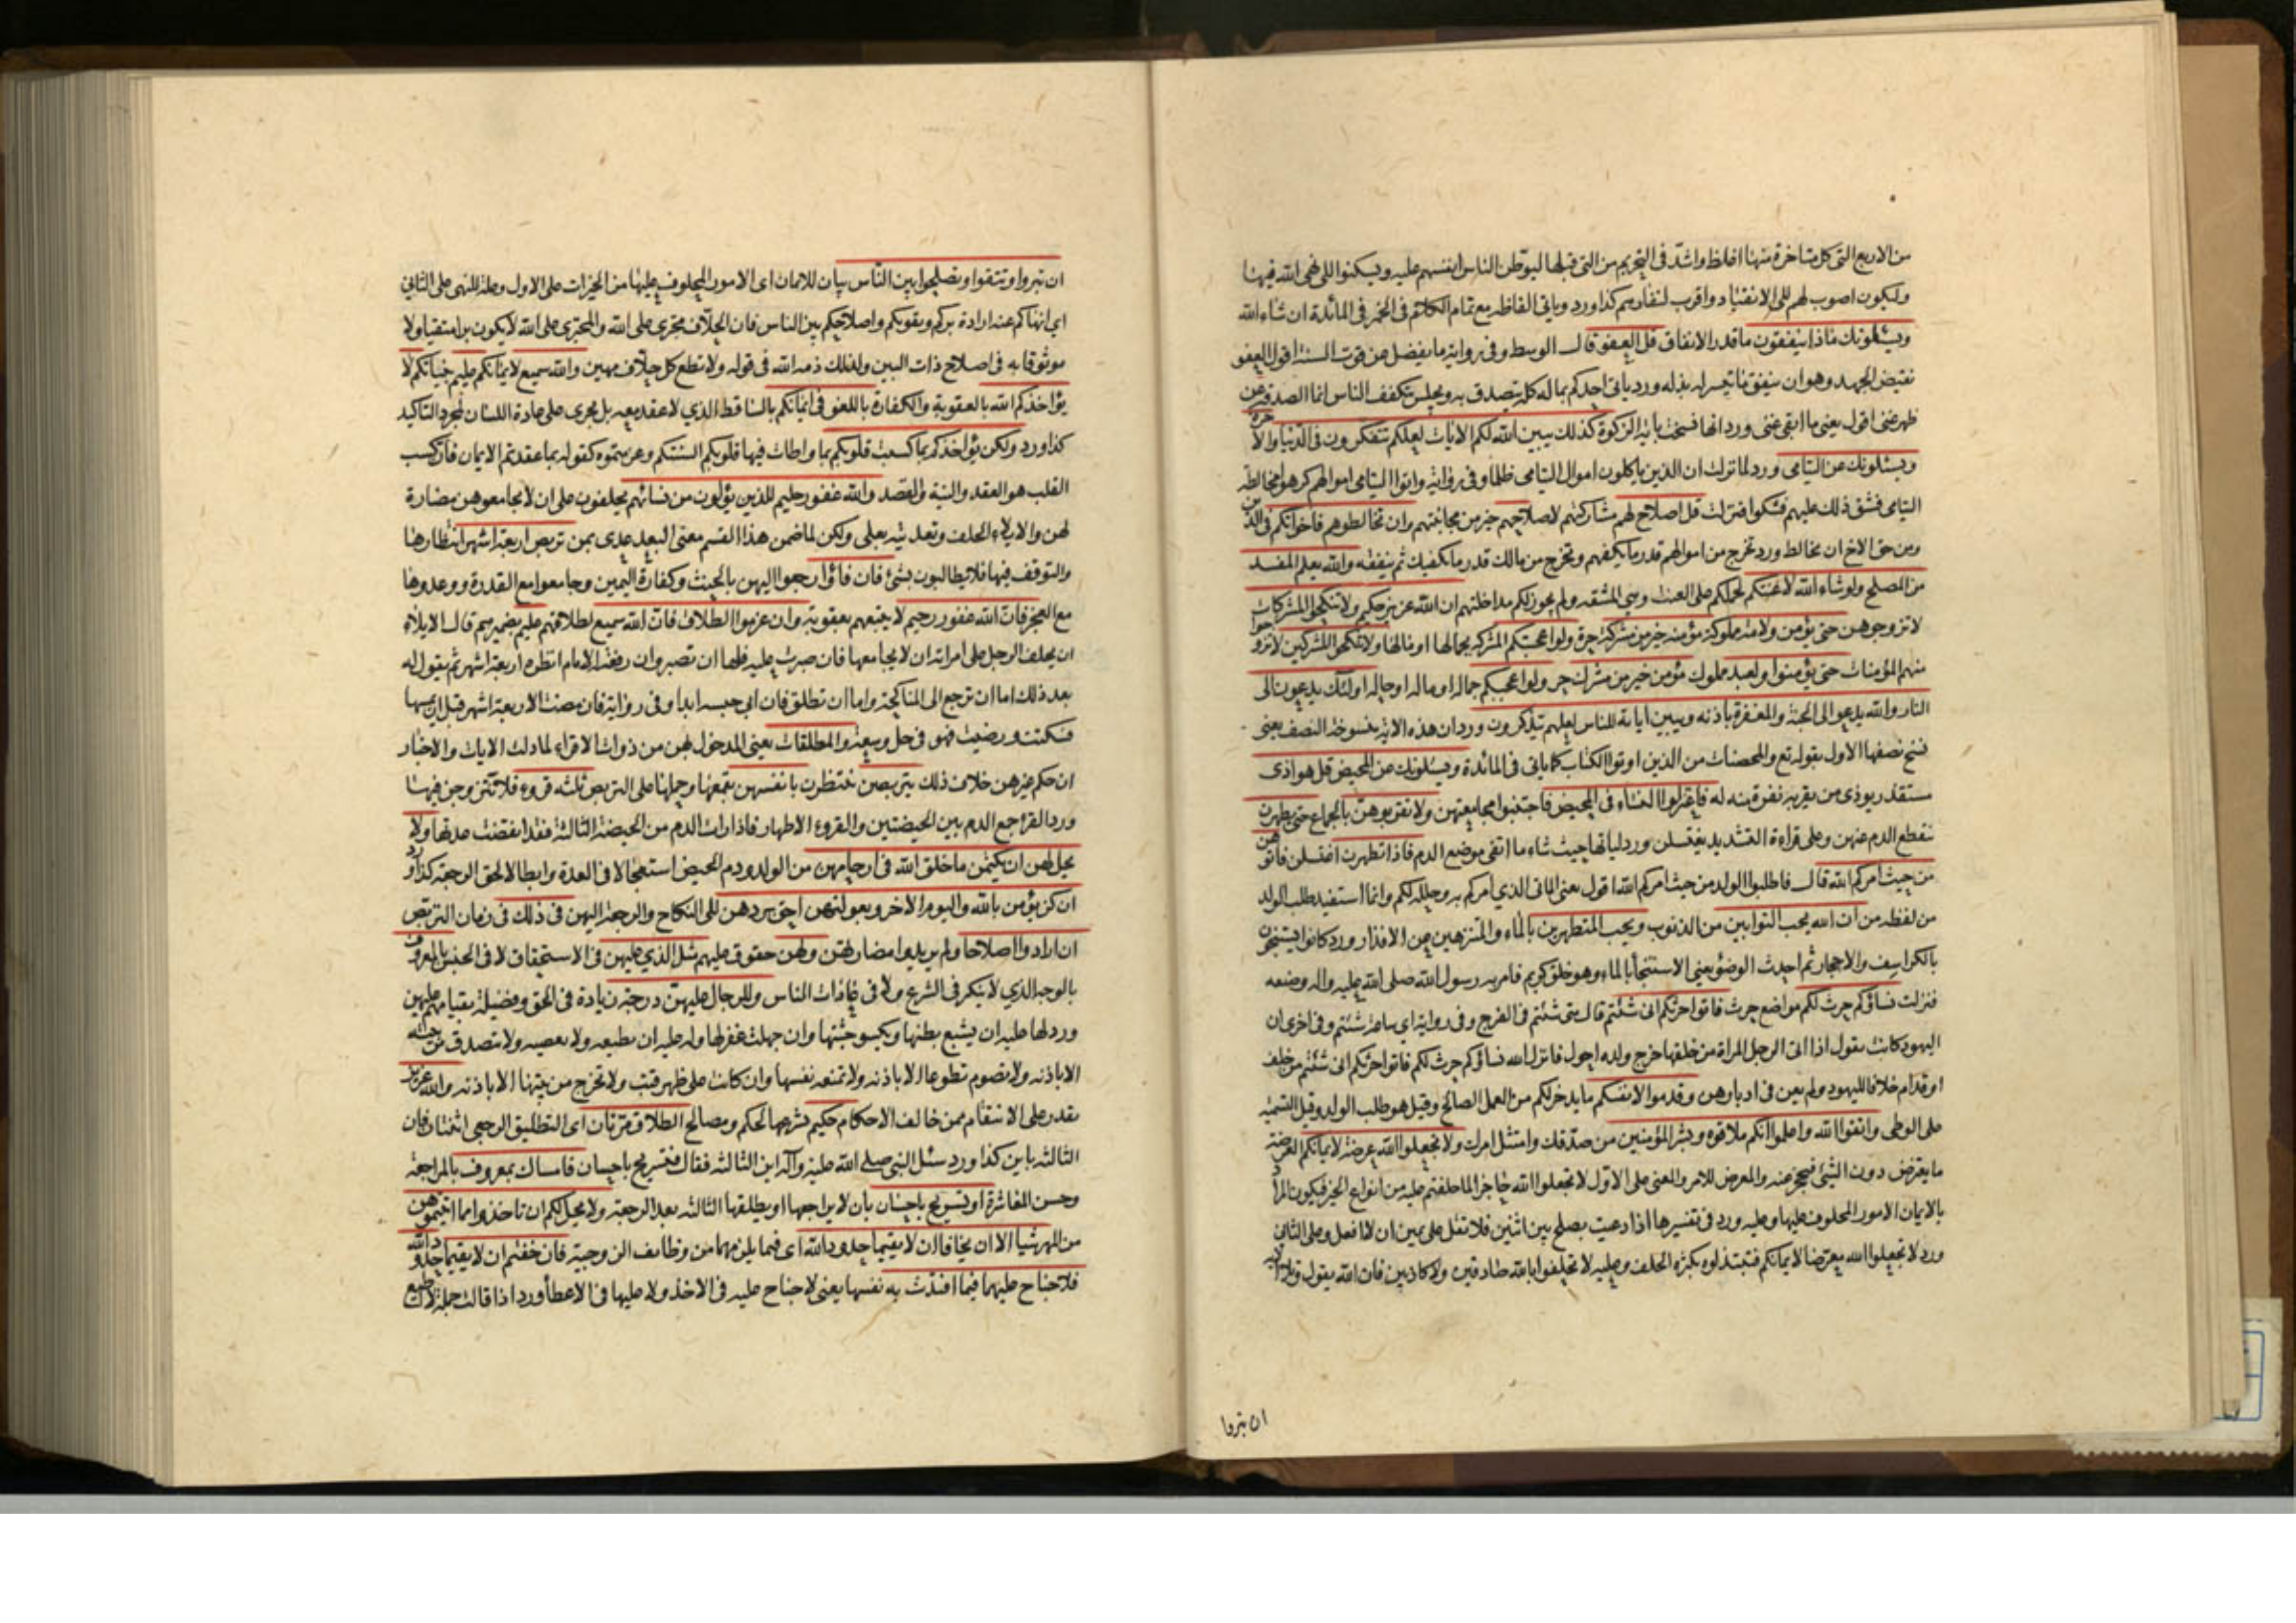 من الاربع التی کل متاخرة منها اغلظ واشدّ فی التحریم من التی قبلها لیوطّن الناس انفسهم علیه ویسکنوا الی نهی الله فیها
ولیکون اصوب لهم الی الانقیاد واقرب لنفارهم کذا ورد ویاتی الفاظه مع تمام الکلام فی الخمر فی المائدة ان شاء الله
ویسئلونک ماذا ینفقون ما قدر الانفاق قل العفو قال الوسط وفی روایة ما یفضل عن قوت السنة اقول العفو
نقیض الجهد وهو ان ینفق ما تیسر له بذله ورد یاتی احدکم بماله کله یتصدق به ویجلس یتکفف الناس انما الصدقة عن
ظهر غنی اقول یعنی ما ابقی غنی ورد انها نسخت بایة الزکوة کذلک یبین الله لکم الایات لعلکم تتفکرون فی الدنیا والاخرة
ویسئلونک عن الیتامی ورد لما نزلت ان الذین یاکلون اموال الیتامی ظلما وفی روایة واتوا الیتامی اموالهم کرهوا مخالطة
الیتامی فشق ذلک علیهم فشکوا فنزلت قل اصلاح لهم مشارکتهم لاصلاحهم خیر من مجانبتهم وان تخالطوهم فاخوانکم فی الدین
ومن حق الاخ ان یخالط ورد تخرج من اموالهم قدر ما یکفیهم وتخرج من مالک قدر ما یکفیک ثم ینفقه والله یعلم المفسد
من المصلح ولو شاء الله لاعنتکم لحملکم علی العنت وهی المشقة ولم یجوز لکم مداخلتهم ان الله عزیز حکیم ولا تنکحوا المشرکات
لا تزوجوهن حتی یؤمن ولامة مملوکة مؤمنة خیر من مشرکة حرة ولو اعجبتکم المشرکة بجمالها او مالها ولا تنکحوا المشرکین لا تزوجوا
منهم المؤمنات حتی یؤمنوا ولعبد مملوک مؤمن خیر من مشرک حر ولو اعجبکم جماله او ماله او حاله اولئک یدعون الی
النار والله یدعو الی الجنة والمغفرة باذنه ویبین ایاته للناس لعلهم یتذکرون ورد ان هذه الایة منسوخة النصف یعنی
نسخ نصفها الاول بقوله تع والمحصنات من الذین اوتوا الکتاب کما یاتی فی المائدة ویسئلونک عن المحیض قل هو اذی
مستقذر یوذی من یقربه نفرة منه له فاعتزلوا النساء فی المحیض فاجتنبوا مجامعتهن ولا تقربوهن بالجماع حتی یطهرن
ینقطع الدم عنهن وعلی قراءة التشدید یغتسلن ورد لیاتها حیث شاء ما اتقی موضع الدم فاذا تطهرن اغتسلن فاتوهن
من حیث امرکم الله قال فاطلبوا الولد من حیث امرکم الله اقول یعنی الماتی الذی امرکم به وحلله لکم وانما استفید طلب الولد
من لفظه من ان الله یحب التوابین من الذنوب ویحب المتطهرین بالماء والمتنزهین من الاقذار ورد کانوا یستنجون
بالکراسف والاحجار ثم احدث الوضوء یعنی الاستنجاء بالماء وهو خلق کریم فامر به رسول الله صلی الله علیه واله وصنعه
فنزلت نساؤکم حرث لکم مواضع حرث فاتوا حرثکم انی شئتم قال متی شئتم فی الفرج وفی روایة ای ساعة شئتم وفی اخری ان
الیهود کانت یقول اذا اتی الرجل المراة من خلفها خرج ولده احول فانزل الله نساؤکم حرث لکم فاتوا حرثکم انی شئتم من خلف
او قدام خلافا للیهود ولم یعن فی ادبارهن وقدموا لانفسکم ما یدخر لکم من العمل الصالح وقیل هو طلب الولد وقیل التسمیة
علی الوطی واتقوا الله واعلموا انکم ملاقوه وبشر المؤمنین من صدّقک وامتثل امرک ولا تجعلوا الله عرضة لایمانکم العرضة
ما یعترض دون الشیء فیحجز عنه والمعرض للامر والمعنی علی الاول لا تجعلوا الله حاجزا لما حلفتم علیه من انواع الخیر فیکون المراد
بالایمان الامور المحلوف علیها وعلیه ورد فی تفسیرها اذا دعیت بصلح بین اثنین فلا تقل علی یمین ان لا افعل وعلی الثانی
ورد لا تجعلوا الله معرضا لایمانکم فتبتذلوه بکثرة الحلف وعلیه لا تحلفوا بالله صادقین ولا کاذبین فان الله یقول
ان تبروا
ان تبروا وتتقوا وتصلحوا بین الناس بیان للایمان ای الامور المحلوف علیها من الخیرات علی الاول وعلة للنهی علی الثانی
ای انهاکم عنه ارادة برکم وتقویکم واصلاحکم بین الناس فان الحلّاف مجتری علی الله والمجتری علی الله لا یکون برا متقیا ولا
موثوقا به فی اصلاح ذات البین ولذلک ذمه الله فی قوله ولا تطع کل حلّاف مهین والله سمیع لایمانکم علیم بنیاتکم لا
یؤاخذکم الله بالعقوبة والکفارة باللغو فی ایمانکم بالساقط الذی لا عقد معه بل یجری علی عادة اللسان لمجرد التاکید
کذا ورد ولکن یؤاخذکم بما کسبت قلوبکم بما واطات فیها قلوبکم السنتکم وعزمتموه کقوله بما عقدتم الایمان فان کسب
القلب هو العقد والنیة والقصد والله غفور حلیم للذین یؤلون من نسائهم یحلفون علی ان لا یجامعوهن مضارة
لهن والایلاء الحلف وتعدیته بعلی ولکن لما ضمن هذا القسم معنی البعد عدی بمن تربص اربعة اشهر انتظارها
والتوقف فیها فلا یطالبون بشیء فان فاؤا رجعوا الیهن بالحنث وکفارة الیمین وجامعوا مع القدرة ووعدوها
مع العجز فان الله غفور رحیم لا یتبعهم بعقوبة وان عزموا الطلاق فان الله سمیع لطلاقهم علیم بضمیرهم قال الایلاء
ان یحلف الرجل علی امراته ان لا یجامعها فان صبرت علیه فلها ان تصبر وان رفعته الی الامام انظره اربعة اشهر ثم یقول له
بعد ذلک اما ان ترجع الی المناکحة واما ان تطلق فان ابی حبسه ابدا وفی روایة فان مضت الاربعة اشهر قبل ان یمسها
فسکتت ورضیت فهو فی حل وسعة والمطلقات یعنی المدخول بهن من ذوات الاقراء لما دلت الایات والاخبار
ان حکم غیرهن خلاف ذلک یتربصن ینتظرن بانفسهن بقمعها وحملها علی التربص ثلثة قروء فلا تتزوجن فیها
ورد القرء جمع الدم بین الحیضتین والقروء الاطهار فاذا رات الدم من الحیضة الثالثة فقد انقضت عدتها ولا
یحل لهن ان یکتمن ما خلق الله فی ارحامهن من الولد ودم الحیض استعجالا فی العدة وابطالا لحق الرجعة کذا ورد
ان کن یؤمن بالله والیوم الاخر وبعولتهن احق بردهن الی النکاح والرجعة الیهن فی ذلک فی زمان التربص
ان ارادوا اصلاحا ولم یریدوا مضارتهن ولهن حقوق علیهم مثل الذی علیهن فی الاستحقاق لا فی الجنس بالمعروف
بالوجه الذی لا ینکر فی الشرع ولا فی عادات الناس وللرجال علیهن درجة زیادة فی الحق وفضیلة بقیامهم علیهن
ورد لها علیه ان یشبع بطنها ویکسو جثتها وان جهلت غفر لها وله علیه ان تطیعه ولا تعصیه ولا تتصدق من بیته
الا باذنه ولا تصوم تطوعا الا باذنه ولا تمنعه نفسها وان کانت علی ظهر قتب ولا تخرج من بیتها الا باذنه والله عزیز
یقدر علی الانتقام ممن خالف الاحکام حکیم یشرعها لحکم ومصالح الطلاق مرتان ای التطلیق الرجعی اثنتان فان
الثالثة باین کذا ورد سئل النبی صلی الله علیه وآله این الثالثة فقال فتسریح باحسان فامساک بمعروف بالمراجعة
وحسن المعاشرة او تسریح باحسان بان لا یراجعها او یطلقها الثالثة بعد الرجعة ولا یحل لکم ان تاخذوا مما اتیتموهن
من المهر شیئا الا ان یخافا ان لا یقیما حدود الله ای فیما یلزمهما من وظایف الزوجیة فان خفتم ان لا یقیما حدود الله
فلا جناح علیهما فیما افتدت به نفسها یعنی لا جناح علیه فی الاخذ ولا علیها فی الاعطاء ورد اذا قالت جملة لا اطیع